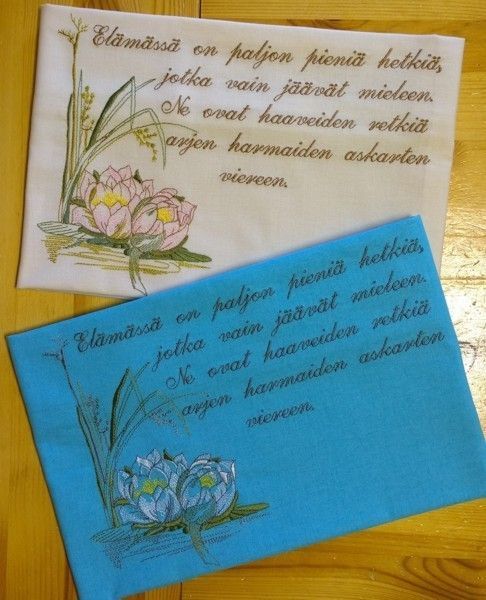 Elämässä on paljon pieniä hetkiä,
jotka vain jäävät mieleen.
Ne ovat haaveiden retkiä
arjen harmaiden askarten
viereen.
Elämässä on paljon pieniä hetkiä,
jotka vain jäävät mieleen.
Ne ovat haaveiden retkiä
arjen harmaiden askarten
viereen.